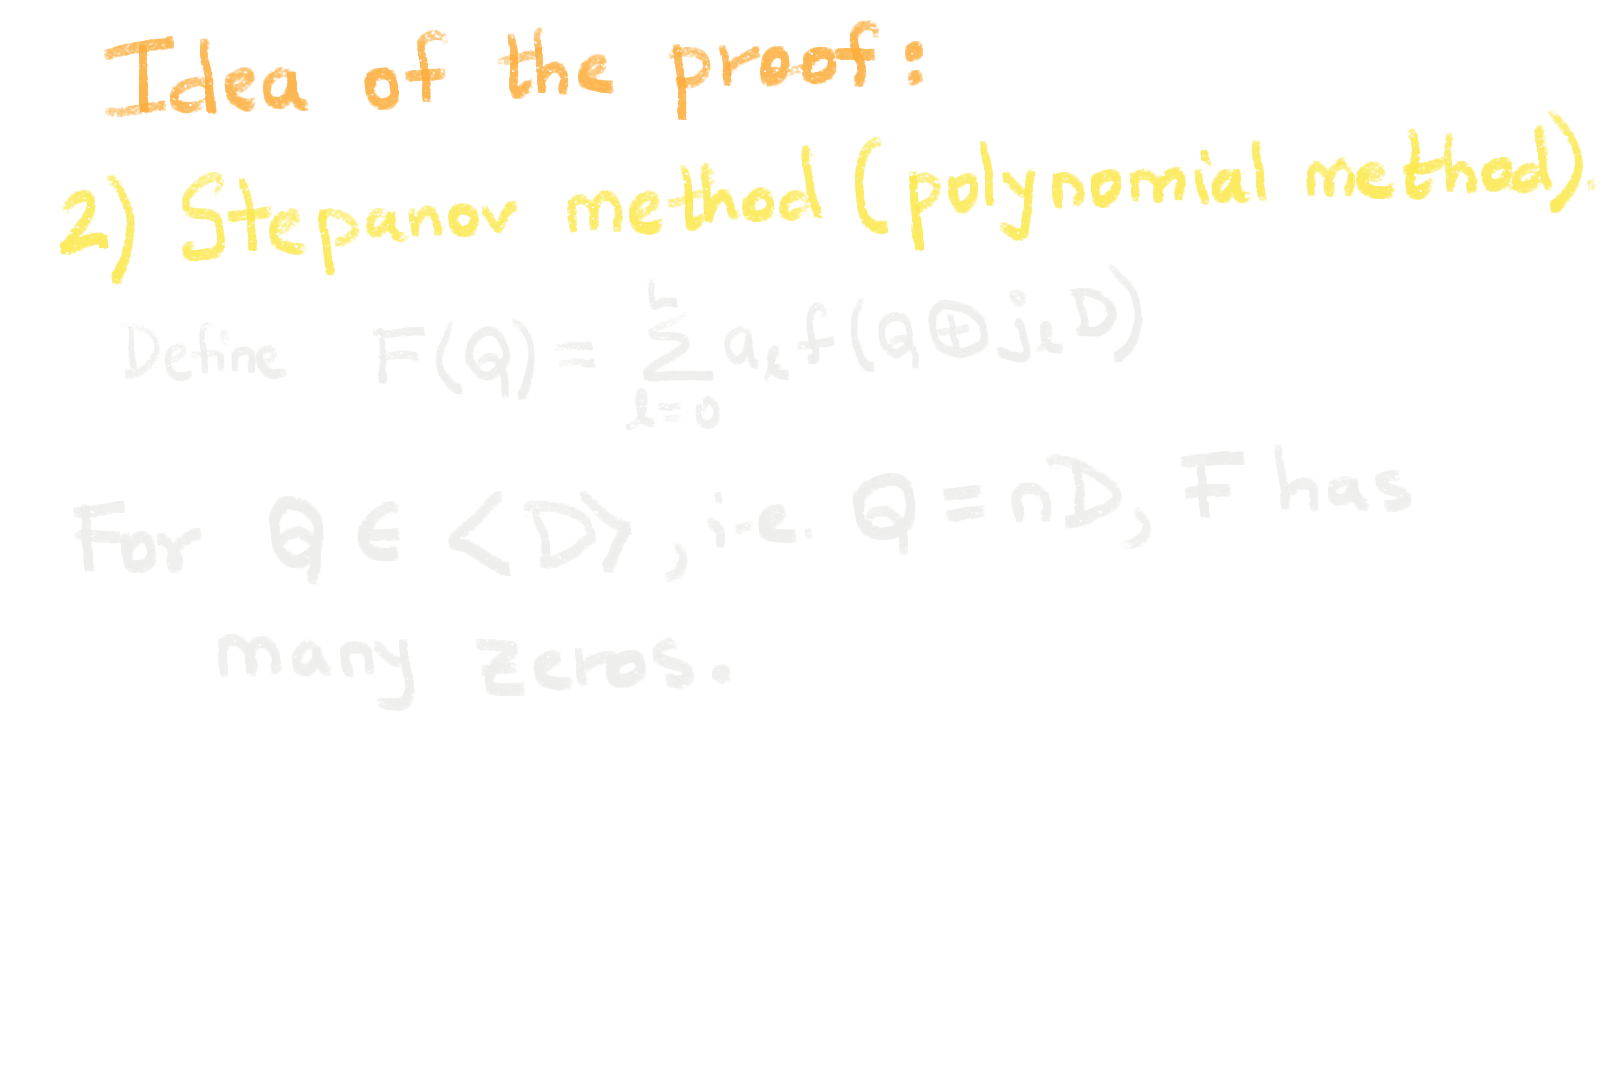 Idea of the proof:
2) Stepanov method (polynomial method).
Define F(Q) = \sum_{l=0}^{r} a_l f(Q ⊕ j_l D)
For Q ∈ <D>, i.e. Q = nD, F has
many zeros.